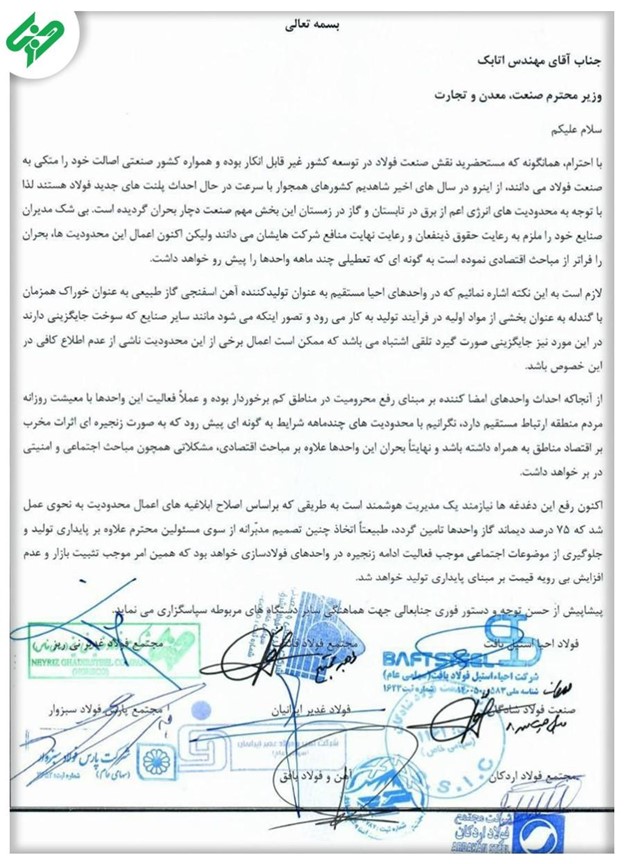 بسمه تعالی
جناب آقای مهندس اتابک
وزیر محترم صنعت، معدن و تجارت
سلام علیکم
با احترام، همانگونه که مستحضرید نقش صنعت فولاد در توسعه کشور غیر قابل انکار بوده و همواره کشور صنعتی اصالت خود را متکی به
صنعت فولاد می دانند، از اینرو در سال های اخیر شاهدیم کشورهای همجوار با سرعت در حال احداث پلنت های جدید فولاد هستند لذا
با توجه به محدودیت های انرژی اعم از برق در تابستان و گاز در زمستان این بخش مهم صنعت دچار بحران گردیده است. بی شک مدیران
صنایع خود را ملزم به رعایت حقوق ذینفعان و رعایت نهایت منافع شرکت هایشان می دانند ولیکن اکنون اعمال این محدودیت ها، بحران
را فراتر از مباحث اقتصادی نموده است به گونه ای که تعطیلی چند ماهه واحدها را پیش رو خواهد داشت.
لازم است به این نکته اشاره نمائیم که در واحدهای احیا مستقیم به عنوان تولیدکننده آهن اسفنجی گاز طبیعی به عنوان خوراک همزمان
با گندله به عنوان بخشی از مواد اولیه در فرآیند تولید به کار می رود و تصور اینکه می شود مانند سایر صنایع که سوخت جایگزینی دارند
در این مورد نیز جایگزینی صورت گیرد تلقی اشتباه می باشد که ممکن است اعمال برخی از این محدودیت ناشی از عدم اطلاع کافی در
این خصوص باشد.
از آنجاکه احداث واحدهای امضا کننده بر مبنای رفع محرومیت در مناطق کم برخوردار بوده و عملاً فعالیت این واحدها با معیشت روزانه
مردم منطقه ارتباط مستقیم دارد، نگرانیم با محدودیت های چندماهه شرایط به گونه ای پیش رود که به صورت زنجیره ای اثرات مخرب
بر اقتصاد مناطق به همراه داشته باشد و نهایتاً بحران این واحدها علاوه بر مباحث اقتصادی، مشکلاتی همچون مباحث اجتماعی و امنیتی
در بر خواهد داشت.
اکنون رفع این دغدغه ها نیازمند یک مدیریت هوشمند است به طریقی که براساس اصلاح ابلاغیه های اعمال محدودیت به نحوی عمل
شد که ۷۵ درصد دیماند گاز واحدها تامین گردد، طبیعتاً اتخاذ چنین تصمیم مدبّرانه از سوی مسئولین محترم علاوه بر پایداری تولید و
جلوگیری از موضوعات اجتماعی موجب فعالیت ادامه زنجیره در واحدهای فولادسازی خواهد بود که همین امر موجب تثبیت بازار و عدم
افزایش بی رویه قیمت بر مبنای پایداری تولید خواهد شد.
پیشاپیش از حسن توجه و دستور فوری جنابعالی جهت هماهنگی سایر دستگاه های مربوطه سپاسگزاری می نماید.
فولاد احیا استیل بافت
مجتمع فولاد
مجتمع فولاد غدیر نی ریز
BAFTSTEEL
شرکت احیاء استیل فولاد بافت (سهامی عام)
صنعت فولاد شادگان
فولاد غدیر ایرانیان
مجتمع پارس فولاد سبزوار
شرکت پارس فولاد سبزوار
(سهامی عام)
مجتمع فولاد اردکان
آهن و فولاد بافق
S.I.C
شرکت مجتمع
فولاد اردکان